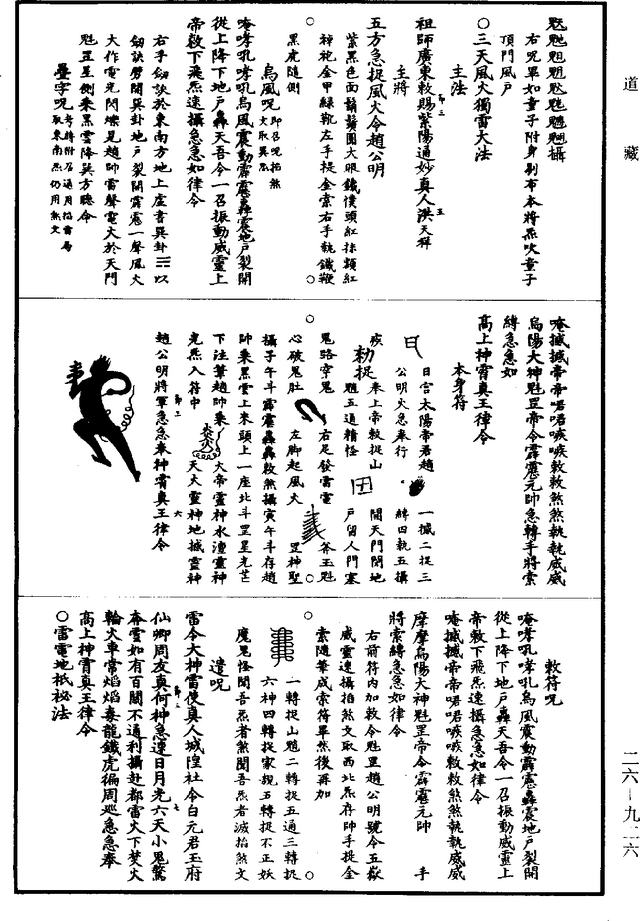 道藏
魁𩲃䰢魓𩵄魒攝
右呪畢如童子附身剔布本將炁吹童子
頂門風戶
○三天風火獨雷大法
主法
祖師廣東敕賜紫陽通妙真人洪天祥
主將
五方急捉風火令趙公明
紫黑色面鬚鬢圓大眼鐵幞頭紅抹額紅
袍金甲綠靴左手提金索右手執鐵鞭
黑虎隨側
烏風呪
唵孝吼孝吼烏風震動霹靂轟震地戶裂開
從上降下地戶轟天吾令一召振動威靈上
帝敕下飛炁速攝急急如律令
右手劍訣於東南方地上虛書巽卦☴以
劍訣劈開巽卦地戶裂開霹靂一聲風火
大作電光閃爍見趙帥雷聲電火於天門
魁罡星側乘黑雲降巽方聽令
疊字呪
唵撼撼帝帝唱唱嗾嗾敕敕煞煞執執威威
烏陽大神魁罡帝令霹靂元帥急轉手將索
縛急急如
高上神霄真王律令
本身符
日宮太陽帝君趙
公明火急奉行
一撼二捉三
縛四執五攝
疾奉上帝敕捉山
魈五通精怪
開天門閉地
戶留人門塞
鬼路穿鬼
心破鬼肚
右足發雷電
左脚起風火
斧玉魁
罡神聖
攝子午斗霹靂轟轟敕煞攝寅午斗存趙
帥乘黑雲上來頭上一座北斗罡星光芒
下注筆趙帥乘
火帝靈神水潼靈神
光炁入符中
天火靈神地撼靈神
趙公明將軍急急奉神霄真王律令
敕符呪
唵孝吼孝吼烏風震動霹靂轟震地戶裂開
從上降下地戶轟天吾令一召振動威靈上
帝敕下飛炁速攝急急如律令
唵撼撼帝帝唱唱嗾嗾敕敕煞煞執執威威
摩摩烏陽大神魁罡帝令霹靂元帥 手
將索縛急急如律令
右前符內加敕令魁罡趙公明號令五嶽
威靈速攝掐煞文取西北炁存帥手提金
索隨筆成索符畢然後再加
一轉捉山魈二轉捉五通三轉捉
六神四轉捉家親五轉捉不正妖
魔鬼怪聞吾炁者煞聞吾炁者滅掐煞文
遣呪
雷令大神雷使真人城隍社令白元君玉府
仙卿周友真何神急運日月光六天小鬼驚
奔雲如有百關不通利攝赴都雷火下焚火
輪火車常焰焰毒龍鐵虎徧周巡急急奉
高上神霄真王律令
○雷電地祇祕法
二六—九二六